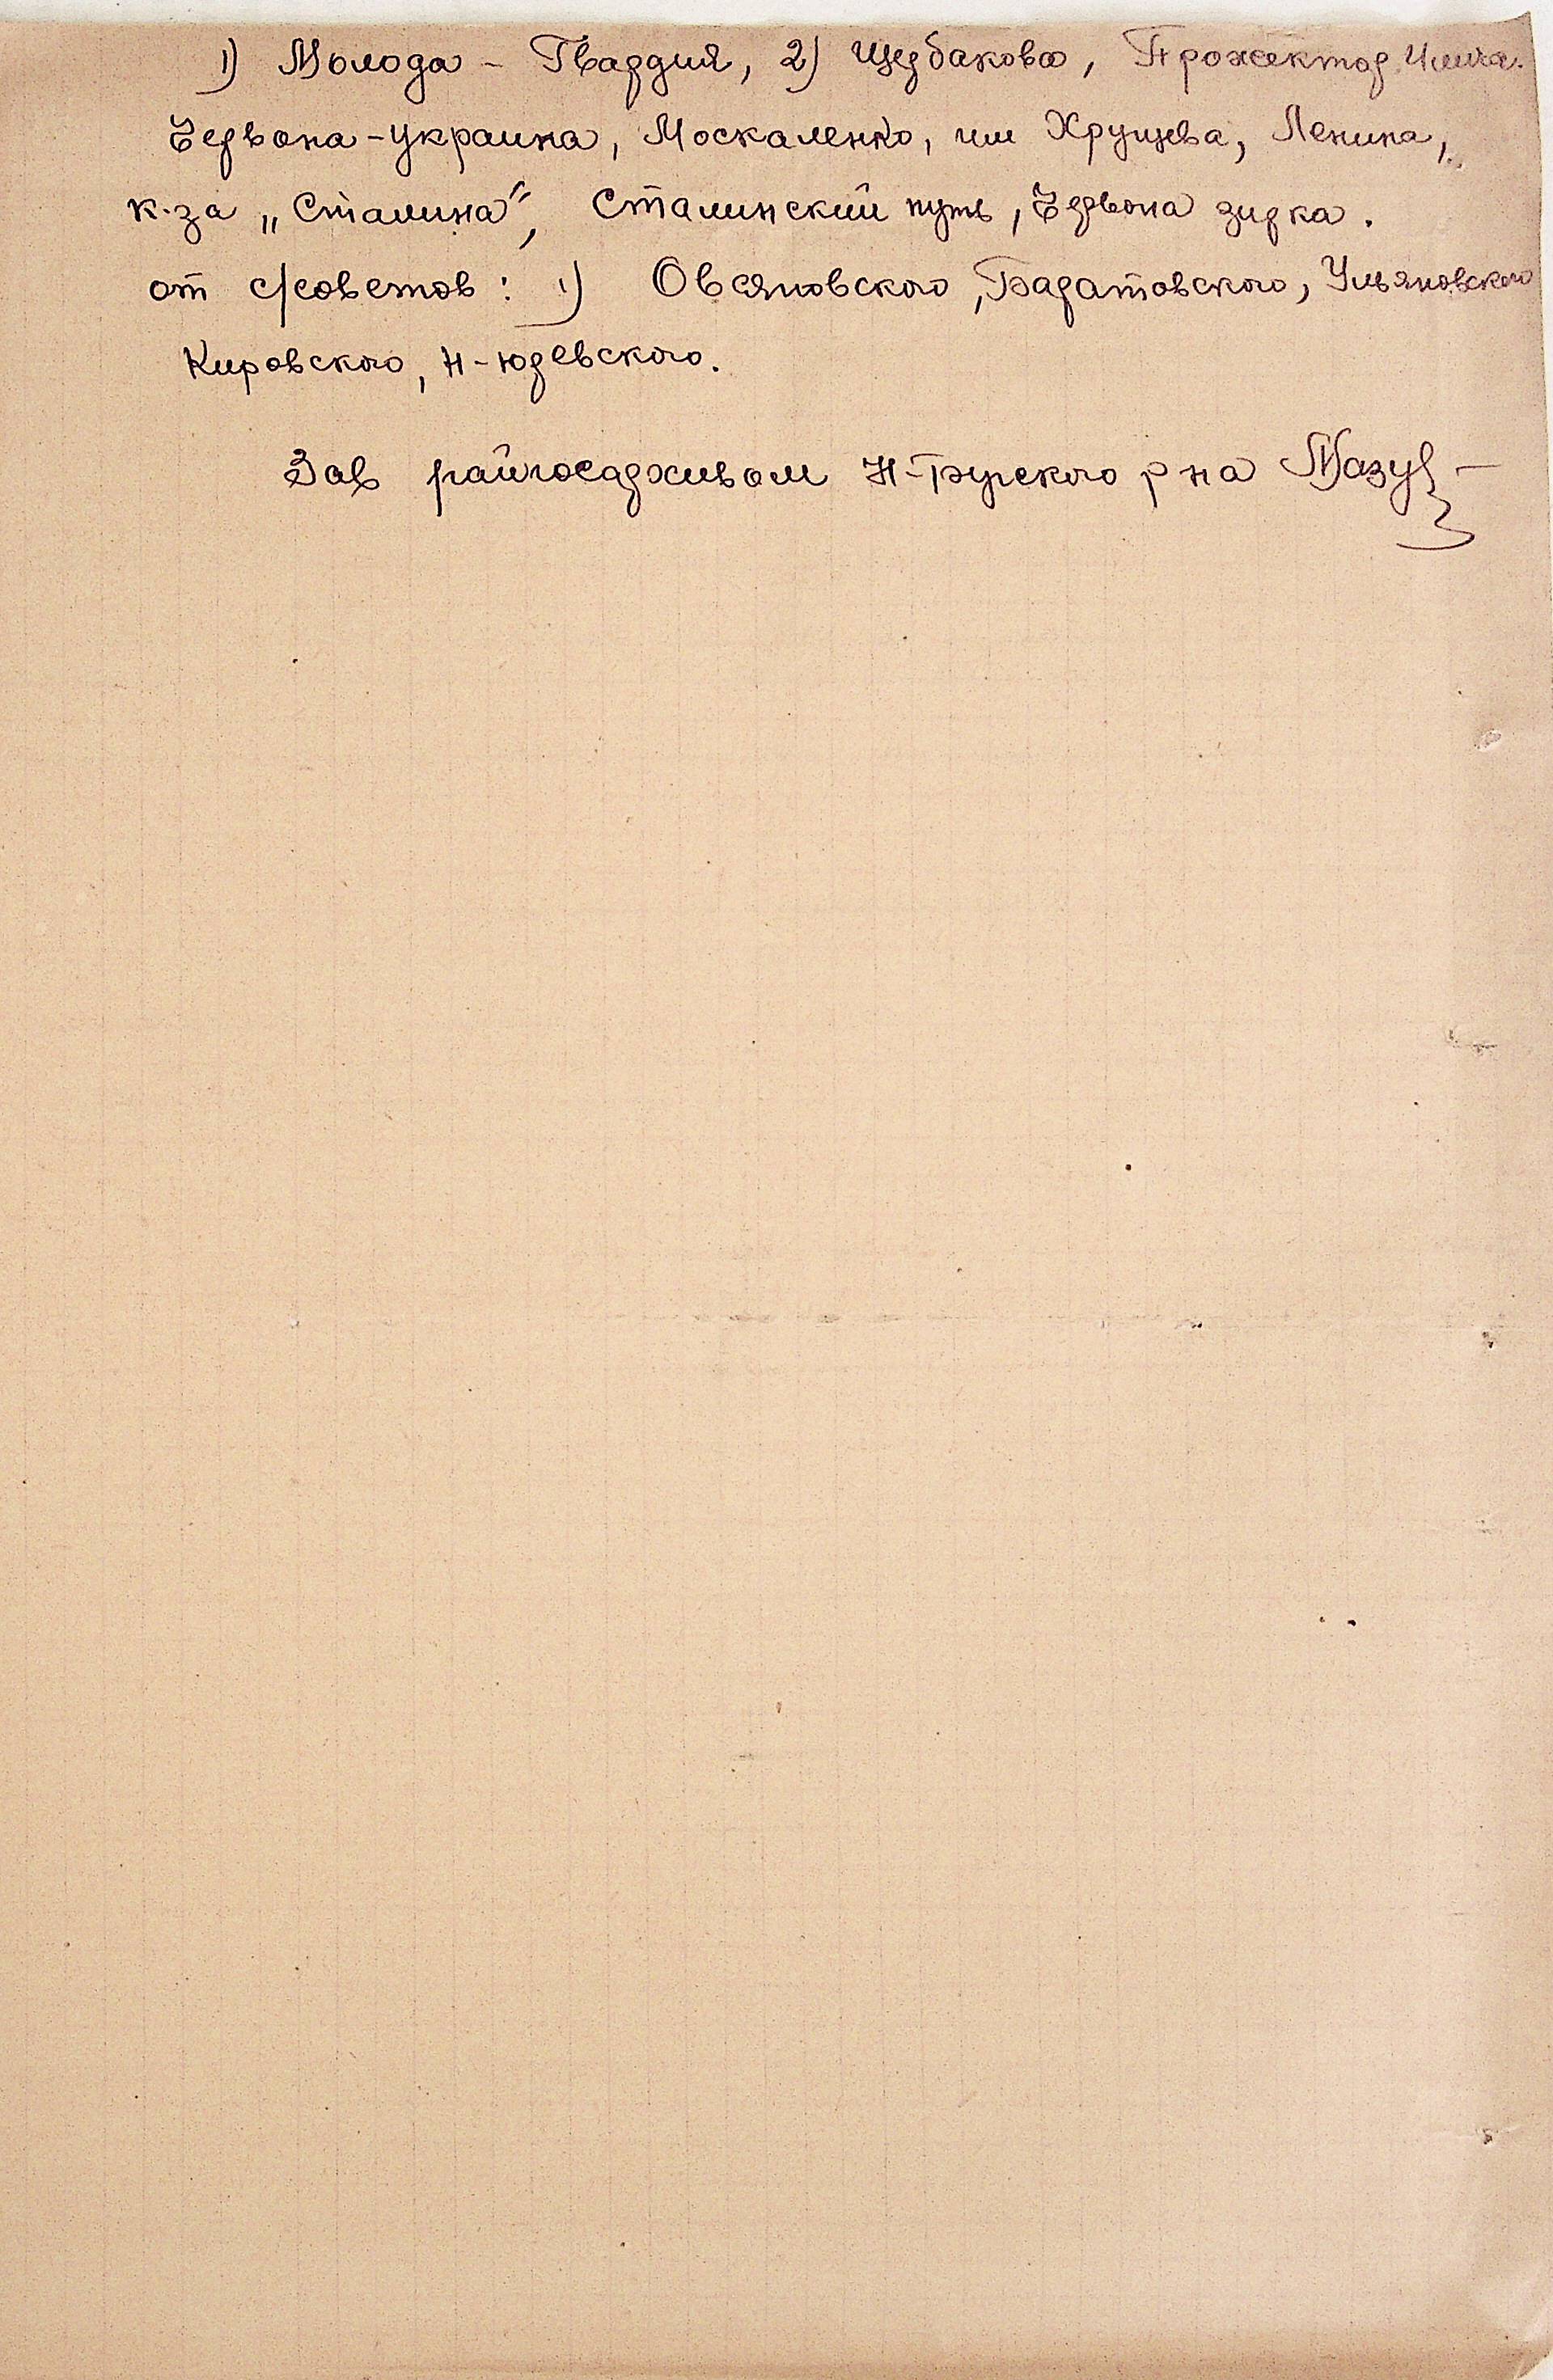 1) Молода - Гвардия, 2) Щербакова, Прожектор Ильича.
Червона-Украина, Москаленко, им Хрущева, Ленина,
к-за „Сталина", Сталинский путь, Червона зирка.
от с/советов: 1) Овсяновского, Баратовского, Ульяновского
Кировского, Н-Юрьевского.
Зав райгосархивом Н-Бугского р на Мазур